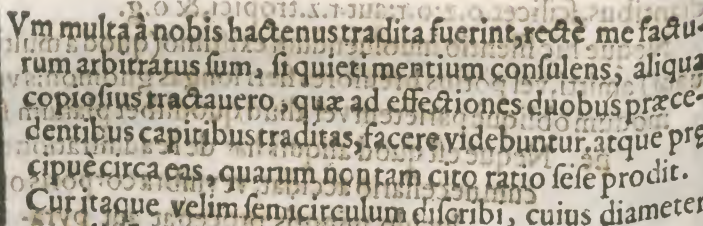 Vm multa à nobis hactenus tradita fuerint, rectè me factu-
rum arbitratus sum, si quieti mentium consulens, aliqua
copiosius tractauero, quæ ad effectiones duobus præce-
dentibus capitibus traditas, facere videbuntur, atque prę
cipuè circa eas, quarum non tam cito ratio sese prodit.
Cur itaque velim semicirculum discribi, cuius diameter